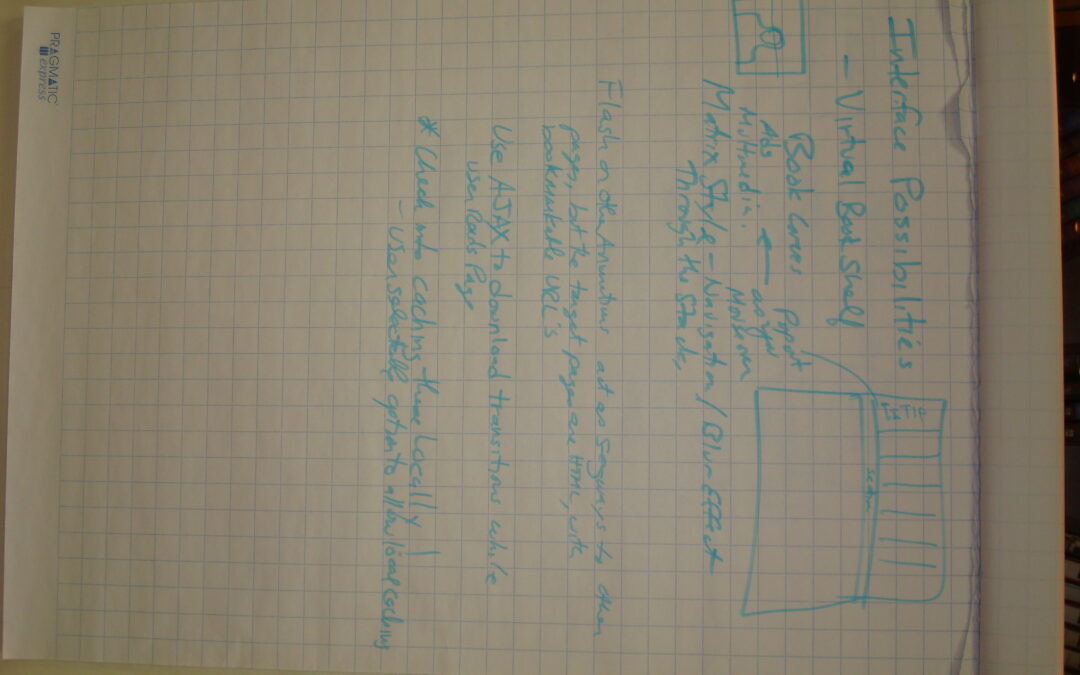 Interface Possibilities
- Virtual Book Shelf
Book Covers Popout
Ads ← as you
Multimedia. Move over
Matrix Style - Navigation / Blur Effect
Through the Stacks
section
Flash or other Animations act as Segways to other
pages, but the target pages are HTML, with
bookmarkable URL's
Use AJAX to download transitions while
user Reads Page
* Check into caching these Locally!
- user selectable option to allow local caching
PRAGMATIC
express